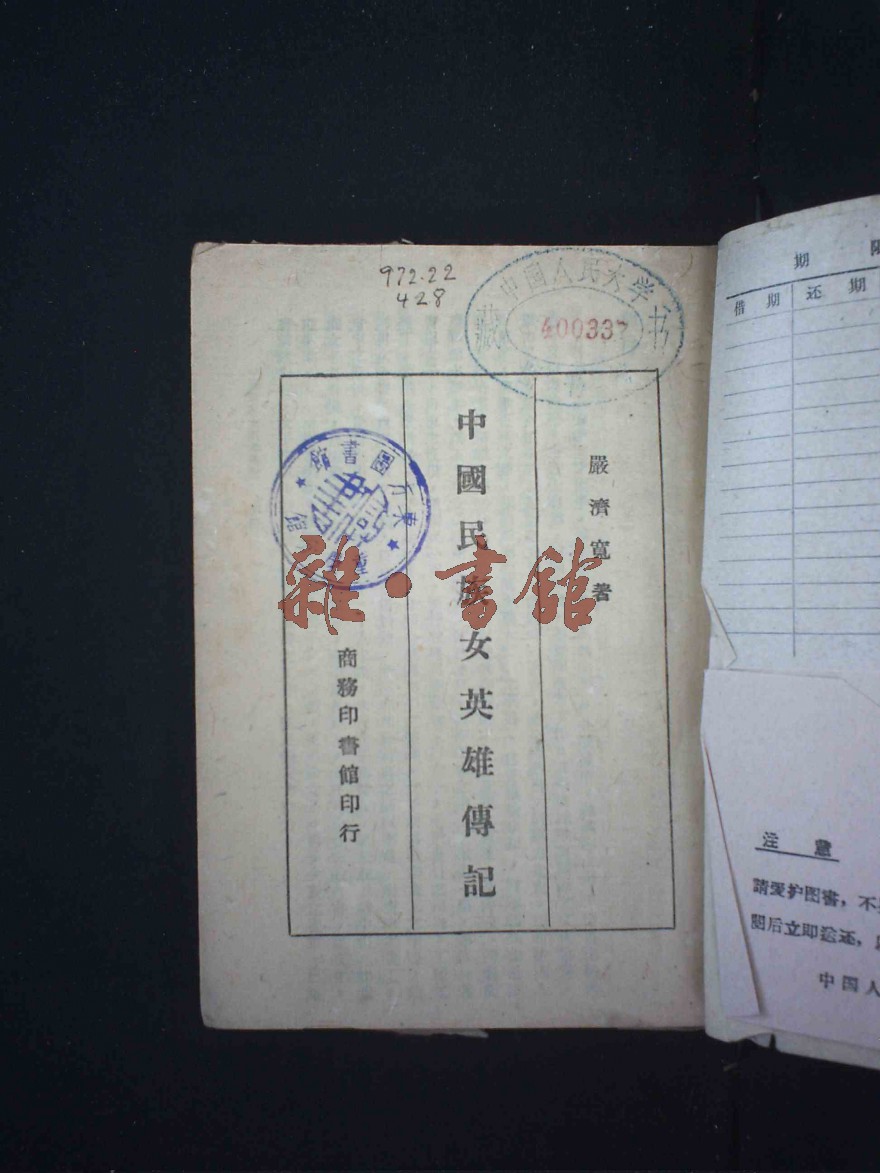 972.22
428
中国人民大学
藏书
400337
嚴濟寬著
中國民族女英雄傳記
商務印書館印行
東方圖書館
雜·書館
期 限
借期 还期
注意
請爱护图書,不
閱后立即送还,
中国人